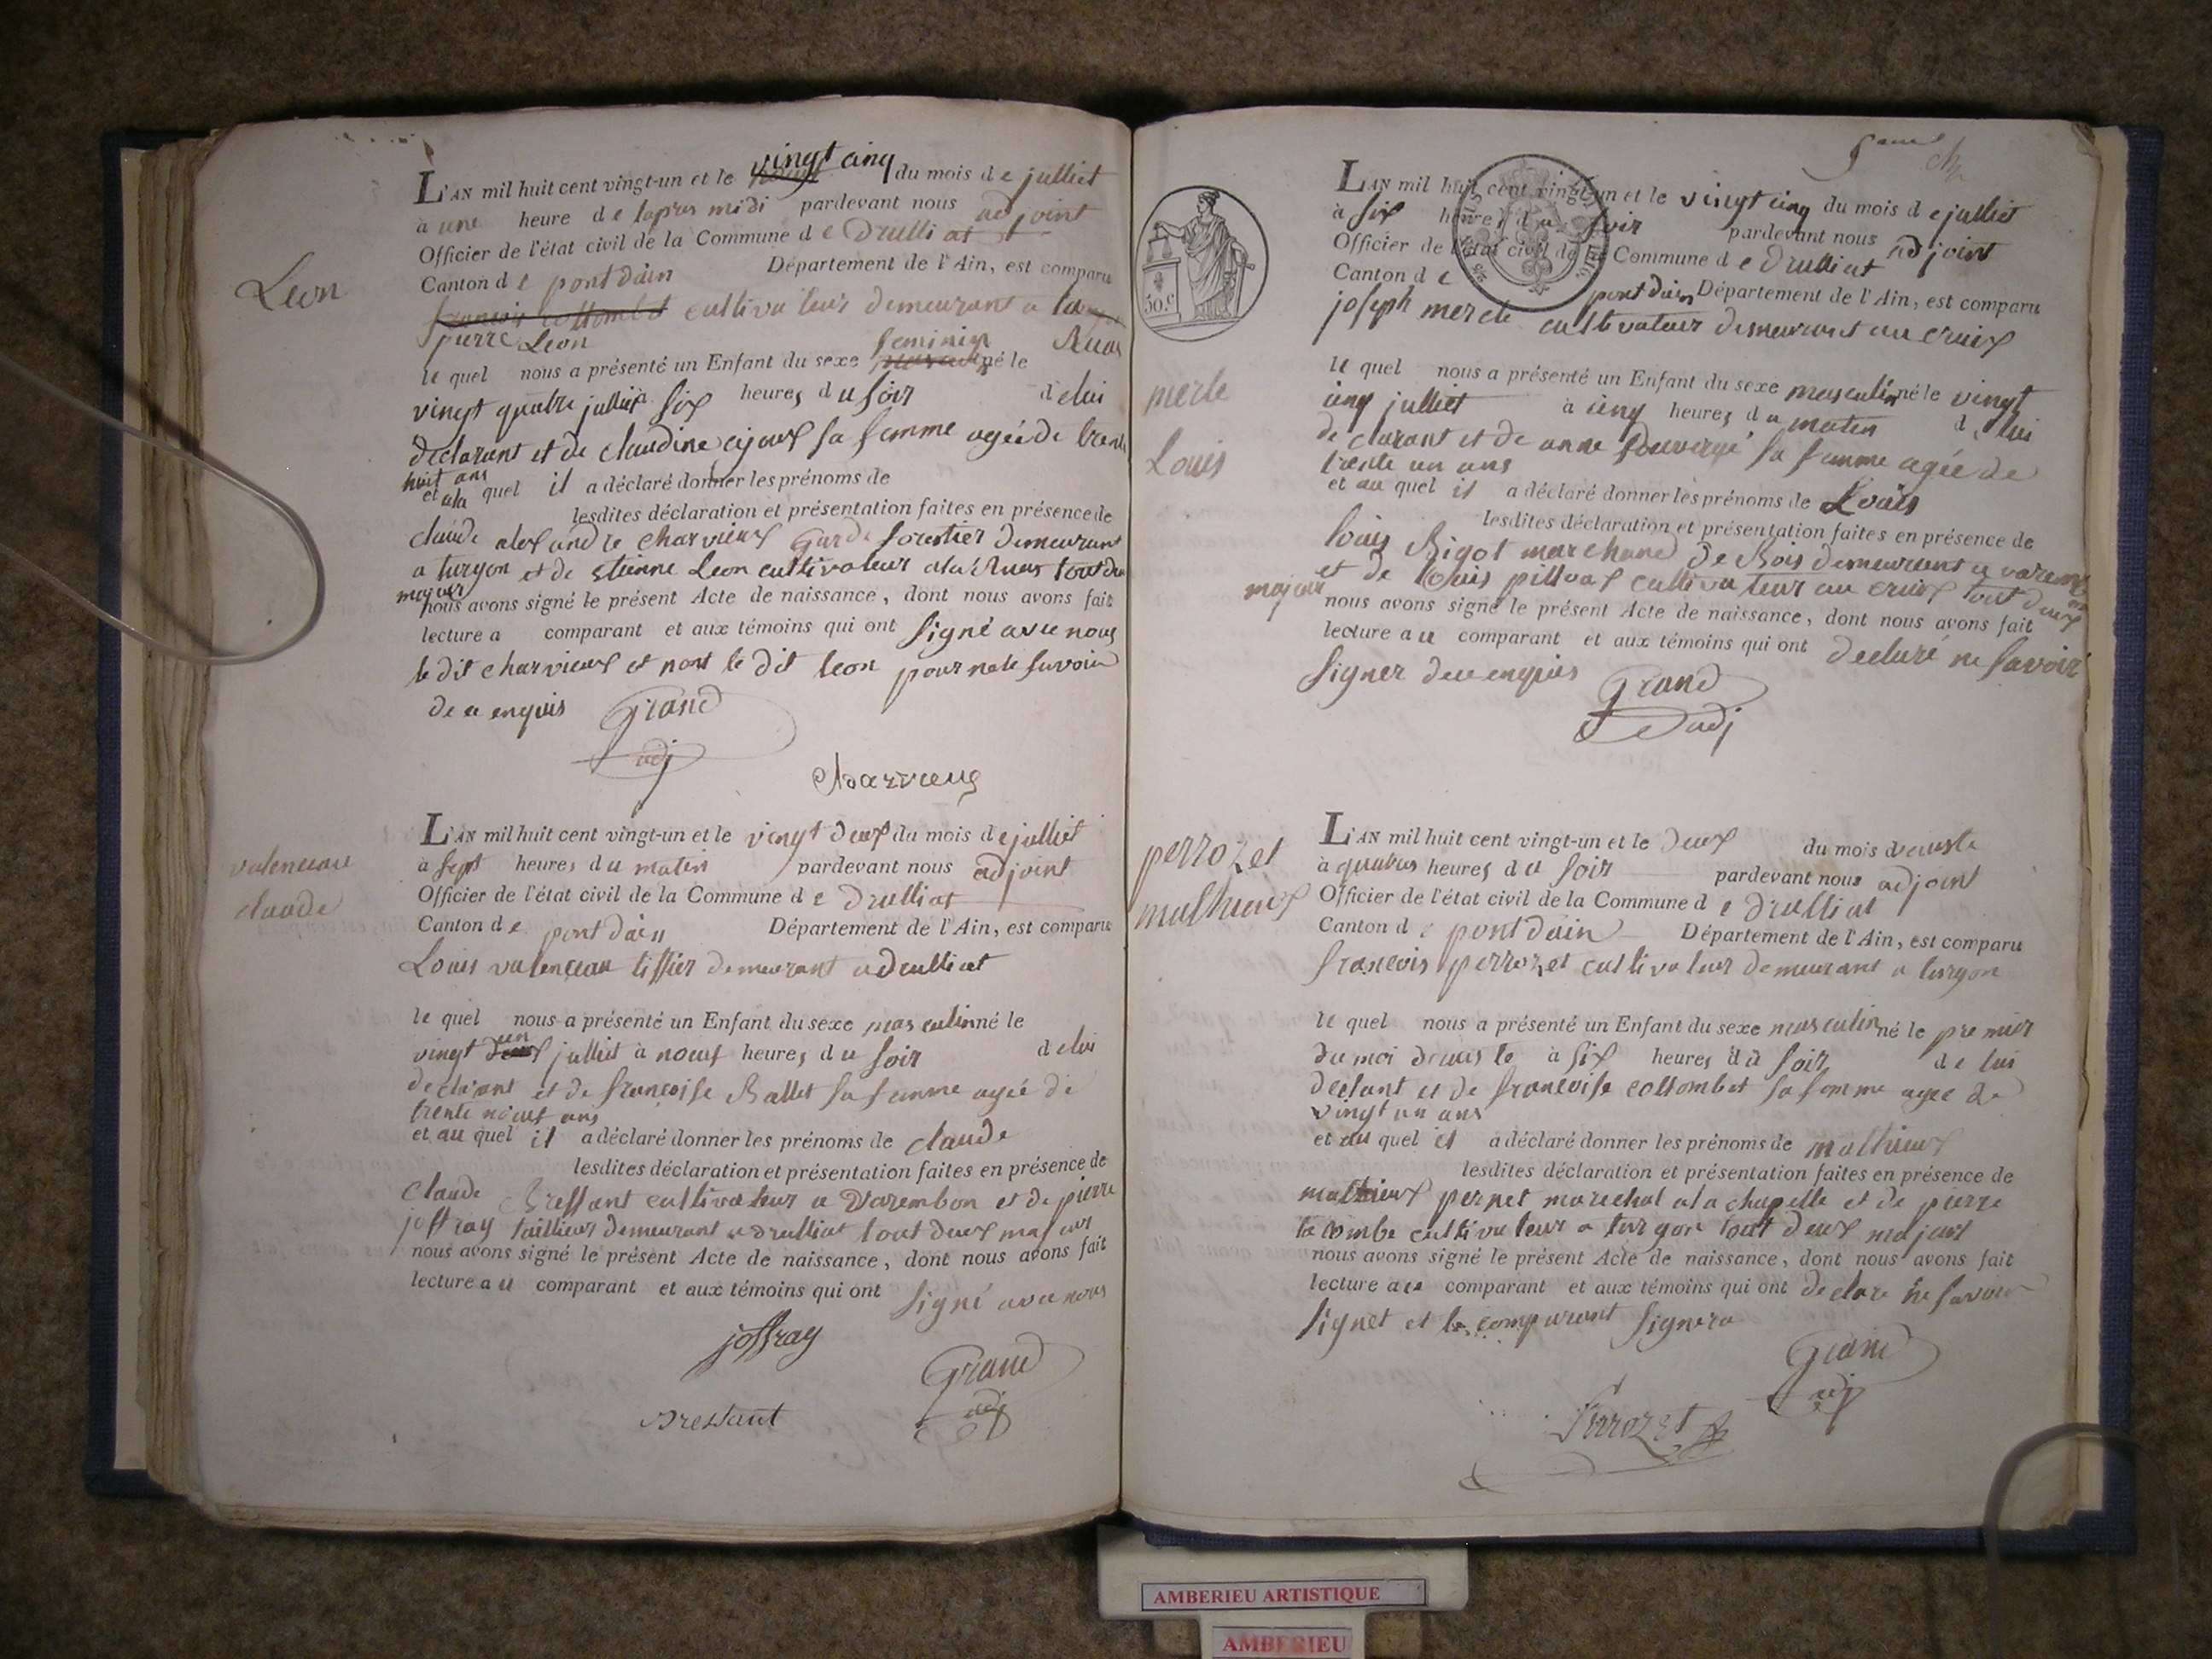 L'AN mil huit cent vingt-un et le vingt cinq du mois de julliet
à une heure de lapres midi pardevant nous adjoint
Officier de l'état civil de la Commune de Drulliat
Canton de pont dain Département de l'Ain, est comparu
françois collombet cultivateur demeurant a la
pierre Leon Ruas
le quel nous a présenté un Enfant du sexe feminin né le
vingt quatre julliet à six heures du soir de lui
declarant et de claudine ajoux sa femme agée de trente
huit ans
et a la quel il a déclaré donner les prénoms de
lesdites déclaration et présentation faites en présence de
claude alexandre charvieux Garde forestier demeurant
a turgon et de etienne Leon cultivateur a la Ruas tout deux
majeur
nous avons signé le présent Acte de naissance, dont nous avons fait
lecture a comparant et aux témoins qui ont signé avec nous
le dit charvieux et nont le dit leon pour ne le savoir
de ce enquis Grand
adj
Charvieux
Leon
L'AN mil huit cent vingt-un et le vingt deux du mois de julliet
à sept heures du matin pardevant nous adjoint
Officier de l'état civil de la Commune de Drulliat
Canton de pont dain Département de l'Ain, est comparu
Louis valenceau tissier demeurant a drulliat
le quel nous a présenté un Enfant du sexe masculin né le
vingt un julliet à noeuf heures du soir de lui
declarant et de françoise Ballet sa femme agée de
trente noeuf ans
et au quel il a déclaré donner les prénoms de claude
lesdites déclaration et présentation faites en présence de
claude Bressant cultivateur a varembon et de pierre
joffray taillieur demeurant a drulliat tout deux majeur
nous avons signé le présent Acte de naissance, dont nous avons fait
lecture au comparant et aux témoins qui ont signé avec nous
joffray
Grand
adj
Bressant
valenceau
claude
L'AN mil huit cent vingt-un et le vingt cinq du mois de julliet
à six heures du soir pardevant nous adjoint
Officier de l'état civil de la Commune de Drulliat
Canton de pont dain Département de l'Ain, est comparu
joseph merle cultivateur demeurant au cruix
le quel nous a présenté un Enfant du sexe masculin né le vingt
cinq julliet à cinq heures du matin de lui
declarant et de anne sa femme agée de
trente un ans
et au quel il a déclaré donner les prénoms de Louis
lesdites déclaration et présentation faites en présence de
louis Bigot marchand de Bois demeurant a varembon
et de Louis pilloux cultivateur au cruix tout deux
majeur
nous avons signé le présent Acte de naissance, dont nous avons fait
lecture au comparant et aux témoins qui ont declaré ne savoir
signer de ce enquis Grand
adj
50.c
merle
Louis
L'AN mil huit cent vingt-un et le deux du mois d'auste
à quatres heures du soir pardevant nous adjoint
Officier de l'état civil de la Commune de Drulliat
Canton de pont dain Département de l'Ain, est comparu
françois perrozet cultivateur demeurant a turgon
le quel nous a présenté un Enfant du sexe masculin né le premier
du moi dauste à six heures du soir de lui
declant et de francoise collombet sa femme agee de
vingt un ans
et au quel il a déclaré donner les prénoms de mathieux
lesdites déclaration et présentation faites en présence de
mathieux pernet marechal a la chapelle et de pierre
lacombe cultivateur a turgon tout deux majeur
nous avons signé le présent Acte de naissance, dont nous avons fait
lecture au comparant et aux témoins qui ont declare ne savoir
signet et le comparant signera
Grand
adj
Perrozet
perrozet
mathieux
AMBERIEU ARTISTIQUE
AMBERIEU